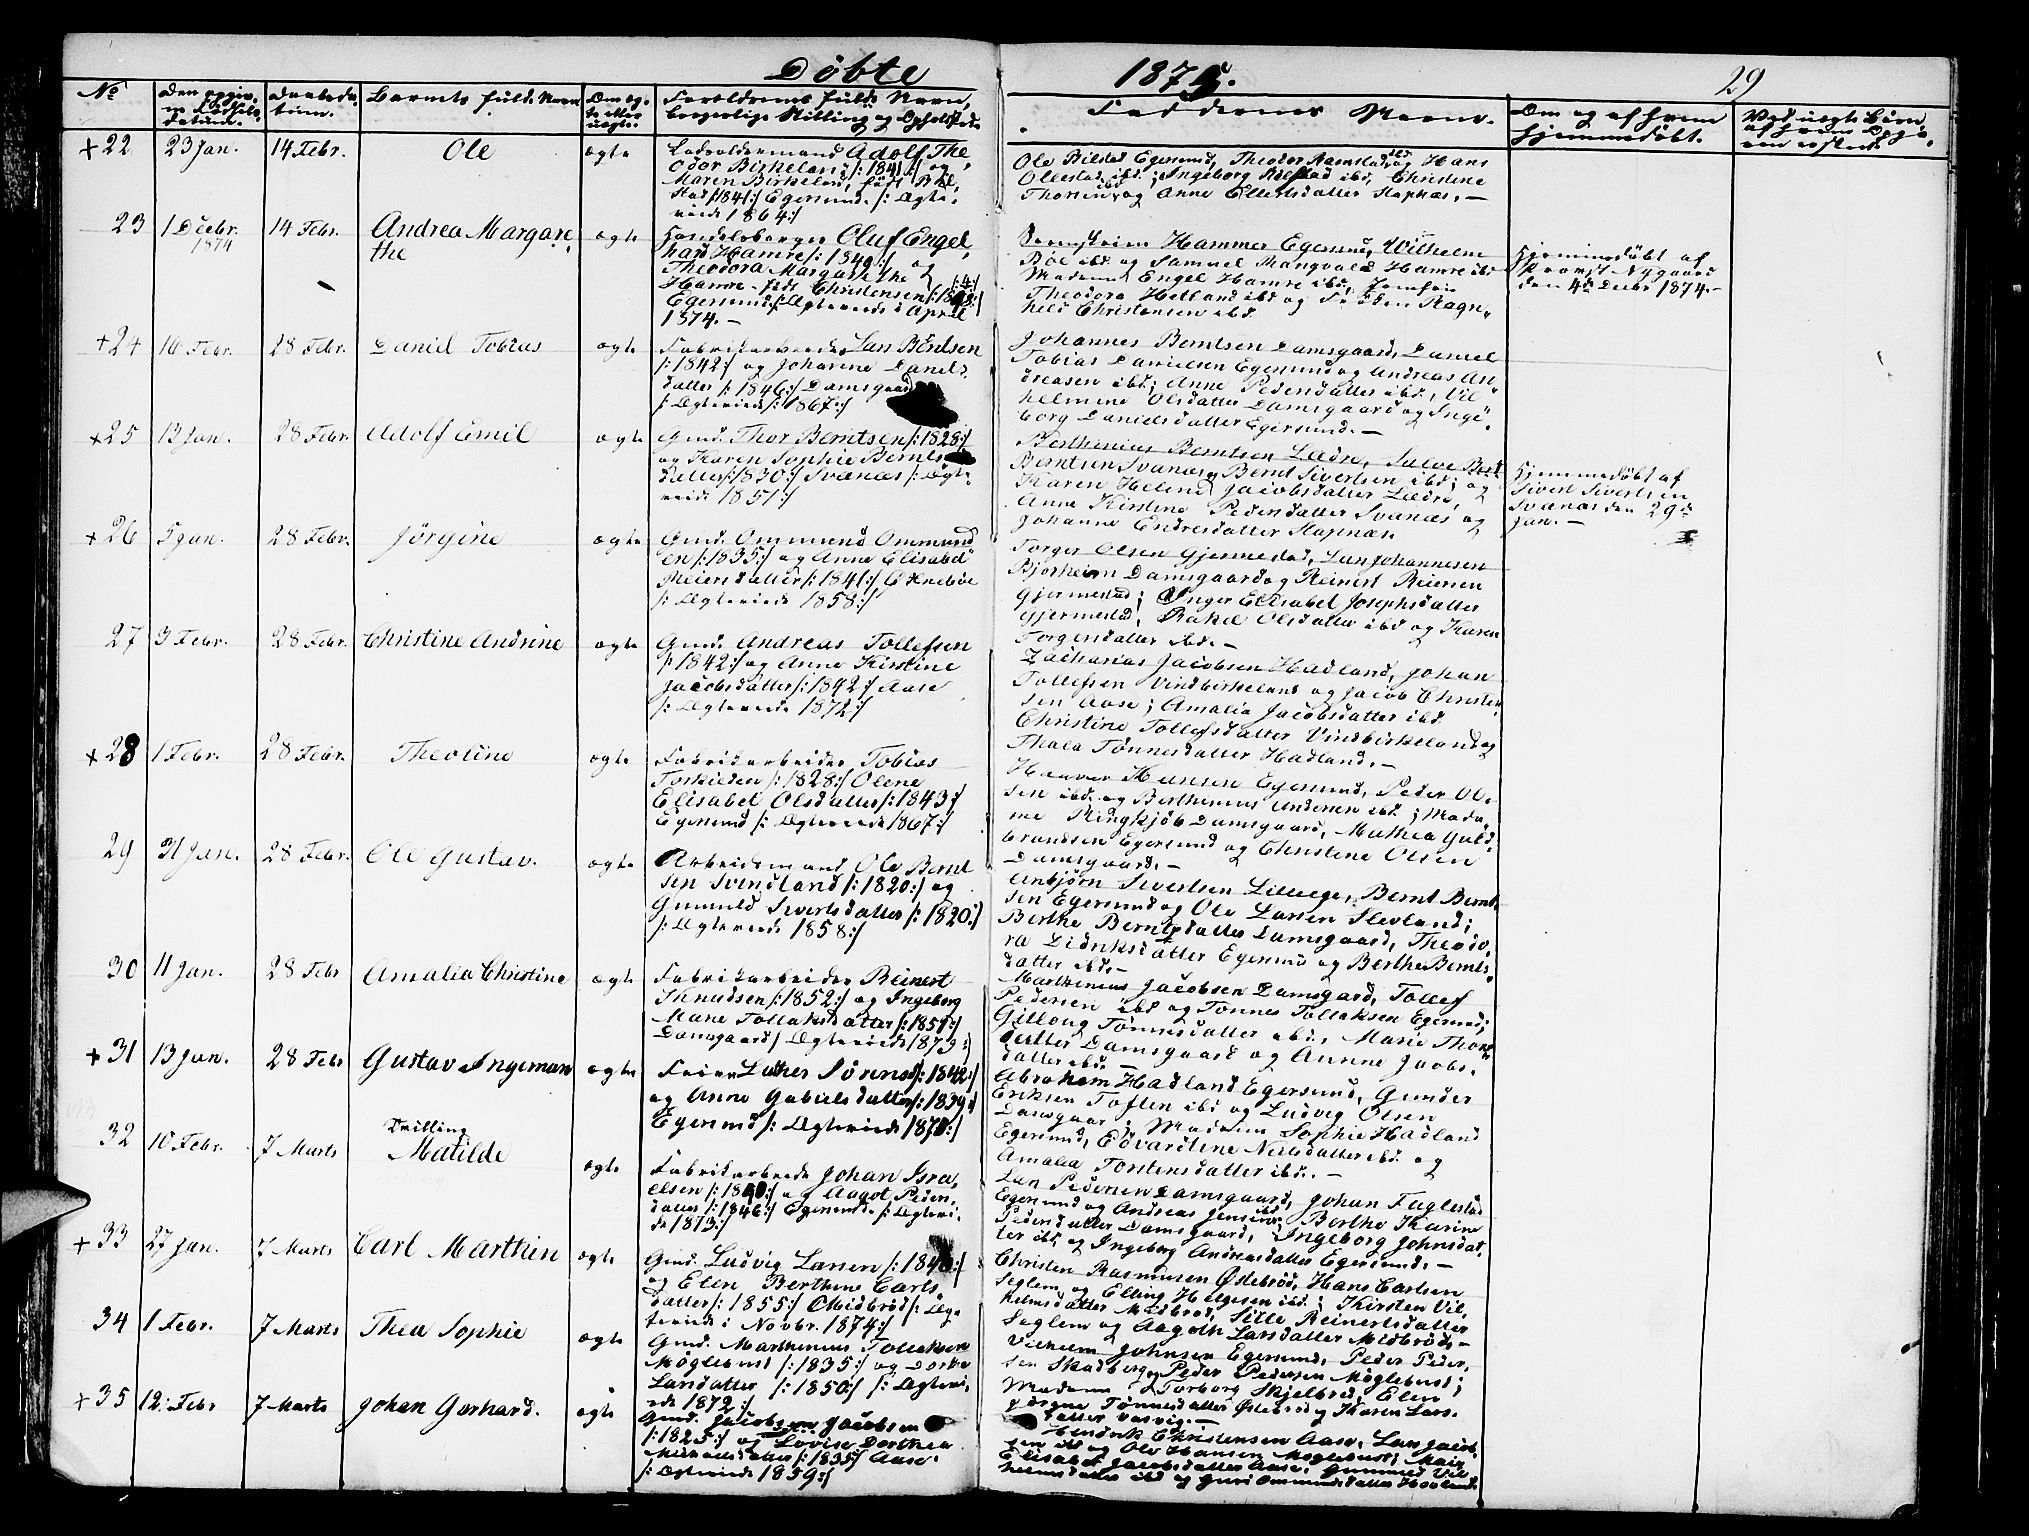 Döbte 1875. 29
No
Barnets fulde Navn
Forældrenes fulde Navn,
borgerlige Stilling og Opholdssted
Faddernes Navne.
Om og af hvem
hjemmedöbt.
+22 23 Jan. 14 Febr. Ole ægte
Adolf The
odor Birkeland /:1841:/ og
Maren Birkeland, født
/:1841:/ Egersund. /: Ægte
viede 1864:/
Ole Bilstad Egersund, Theodor Ramslad ibd og Hans
Ollestad ibd; Ingeborg ibd, Christine
Thorsen ibd og Anne Ellertsdatter Hapnæs.
23 1 Decbr. 1874 14 Febr. Andrea Margare
the ægte
Handelsborger Oluf Engel
hard Hamre /:1849:/ og
Theodora Margarethe
Hamre født Christensen
Egersund /: Ægteviede i April
1874.
Hammer Egersund, Wilhelm
Böe ibd og Samuel Mangvald Hamre ibd
Madame Engel Hamre ibd, Jomfru
Theodora Hetland ibd og Frøken Ragn
hild Christensen ibd.
Hjemmedöbt af
Provst Nygaard
den 4de Decbr 1874.
+24 16 Febr. 28 Febr. Daniel Tobias ægte
Fabrikarbeider Lars Berntsen
/:1842:/ og Johanne Daniels
datter /:1846:/ Damsgaard
/: Ægteviede /:1867:/
Johannes Berntsen Damsgaard, Daniel
Tobias Danielsen Egersund og Andreas An
dreasen ibd; Anne Pedersdatter ibd, Vil
helmine Olsdatter Damsgaard og Inge
borg Danielsdatter Egersund.
+25 13 Jan. 28 Febr. Adolf Emil ægte
Gmd. Thor Berntsen /:1828:/
og Karen Sophie Bernts
datter /:1830:/ Svanæs /: Ægte
viede 1851:/
Berthinius Berntsen Lædre,
Berntsen Svanæs, Bernt Sivertsen ibd; og
Karen Helene Jacobsdatter Lædre,
Anne Kirstine Pedersdatter Svanæs og
Johanne Endresdatter Hapnæs.
Hjemmedöbt af
Sivert Sivertsen
Svanæs den 29de
Jan.
+26 5 Jan. 28 Febr. Jörgine ægte
Gmd. Ommund Ommund
sen /:1835:/ og Anne Elisabet
Reiersdatter /:1841:/
/: Ægteviede 1858:/
Torger Olsen Gjermestad, Lars Johannesen
Bjorheim Damsgaard og Reinert Reiersen
Gjermestad; Inger Elisabet Josephsdatter
Gjermestad, Rakel Olsdatter ibd og Karen
Torgersdatter ibd.
27 3 Febr. 28 Febr. Christine Andrine ægte
Gmd. Andreas Tollefsen
/:1842:/ og Anne Kirstine
Jacobsdatter /:1842:/ Aase
/: Ægteviede 1872:/
Zacharias Jacobsen Hadland, Johan
Tollefsen Vindbirkeland og Jacob Christen
sen Aase; Amalia Jacobsdatter ibd.
Christine Tollefsdatter Vindbirkeland og
Thala Tönnesdatter Hadland.
+28 1 Febr. 28 Febr. Theoline ægte
Fabrikarbeider Tobias
Torkildsen /:1828:/ Olene
Elisabet Olsdatter /:1843:/
Egersund /: Ægteviede 1867:/
Haaver Hansen Egersund, Peder Ol
sen ibd og Berthinius Andersen ibd; Mada
me Ringkjöb Damsgaard, Mathea Guld
brandsen Egersund og Christine Olsen
Damsgaard.
29 31 Jan. 28 Febr. Ole Gustav. ægte
Arbeidsmand Ole Bernt
sen Svindland /:1820:/ og
Gunnild Sivertsdatter /:1820:/
/: Ægteviede 1858:/
Anbjörn Sivertsen Lilluege, Bernt Bernt
sen Egersund og Ole Larsen Slevland;
Berthe Berntsdatter Damsgaard, Theodo
ra Didriksdatter Egersund og Berthe Bernts
datter ibd.
30 11 Jan. 28 Febr Amalia Christine ægte
Fabrikarbeider Reinert
Knudsen /:1852:/ og Ingeborg
Marie Tollaksdatter /:1851:/
Damsgaard /: Ægteviede 1873:/
Marthinius Jacobsen Damsgaard, Tollef
Pedersen ibd og Tönnes Tollaksen Egersund;
Gitloug Tönnesdatter ibd, Marie Thors
datter Damsgaard og Aunne Jacobs
datter ibd.
+31 13 Jan. 28 Febr Gustav Ingeman ægte
Feier Luther Sörensen /:1842:/
og Anne Gabrielsdatter /:1839:/
Egersund /: Ægteviede 1870:/
Abraham Hadland Egersund, Gunder
Eriksen Toften ibd og Ludvig Olsen
Damsgaard; Madame Sophie Hadland
Egersund, Edvardine Nielsdatter ibd og
Amalia Torstensdatter ibd.
32 10 Febr. 7 Marts Tvilling
Matilde ægte
Fabrikarbeider Johan Isra
elsen og Aagot Peders
datter /:1846:/ Egersund. /: Ægtevi
de 1873:/
Lars Pedersen Damsgaard, Johan Fuglestad
Egersund og Andreas Jensen ibd; Berthe Karine
Pedersdatter Damsgaard, Ingeborg Johnsdat
ter ibd og Ingeborg Andreasdatter Egersund.
+33 27 Jan. 7 Marts Carl Marthin ægte
Gmd. Ludvig Larsen
og Elen Berthine Carls
datter /:1855:/ Midbröd /: Æg
teviede i Novbr. 1874:/
Christen Rasmusen Östebröd, Hans Carlsen
Seglem og Elling Helgesen ibd; Kirsten Vil
helmsdatter Midbröd, Sille Reinertsdatter
Seglem og Aagoth Larsdatter Midbröd.
34 1 Febr. 7 Marts Thea Sophie ægte
Gmd. Marthinius Tollaksen
Möglebust /:1835:/ og Dorthe
Larsdatter /:1850:/ /: Ægtevi
ede 1872:/
Vilhelm Johnsen Egersund, Peder Peder
sen Skadberg, Peder Pedersen Möglebust;
Madame Torborg Skjelbred, Elen
Jörgine Tönnesdatter Östebröd og Karen Lars
datter
+35 12 Febr 7 Marts Johan Gerhard. ægte
Gmd. Jacobsen
/:1825:/ og Lovise Dorthea
Michaelsdatter /:1835:/ Aase.
/: Ægteviede 1859:/
Hendrik Christensen Aase, Lars Jacob
sen ibd og Ole Hansen Möglebust;
Elisabet Jacobsdatter Aase, Gunnild Vil
helmsdatter ibd og Guri Ommundsdatter Hovland.